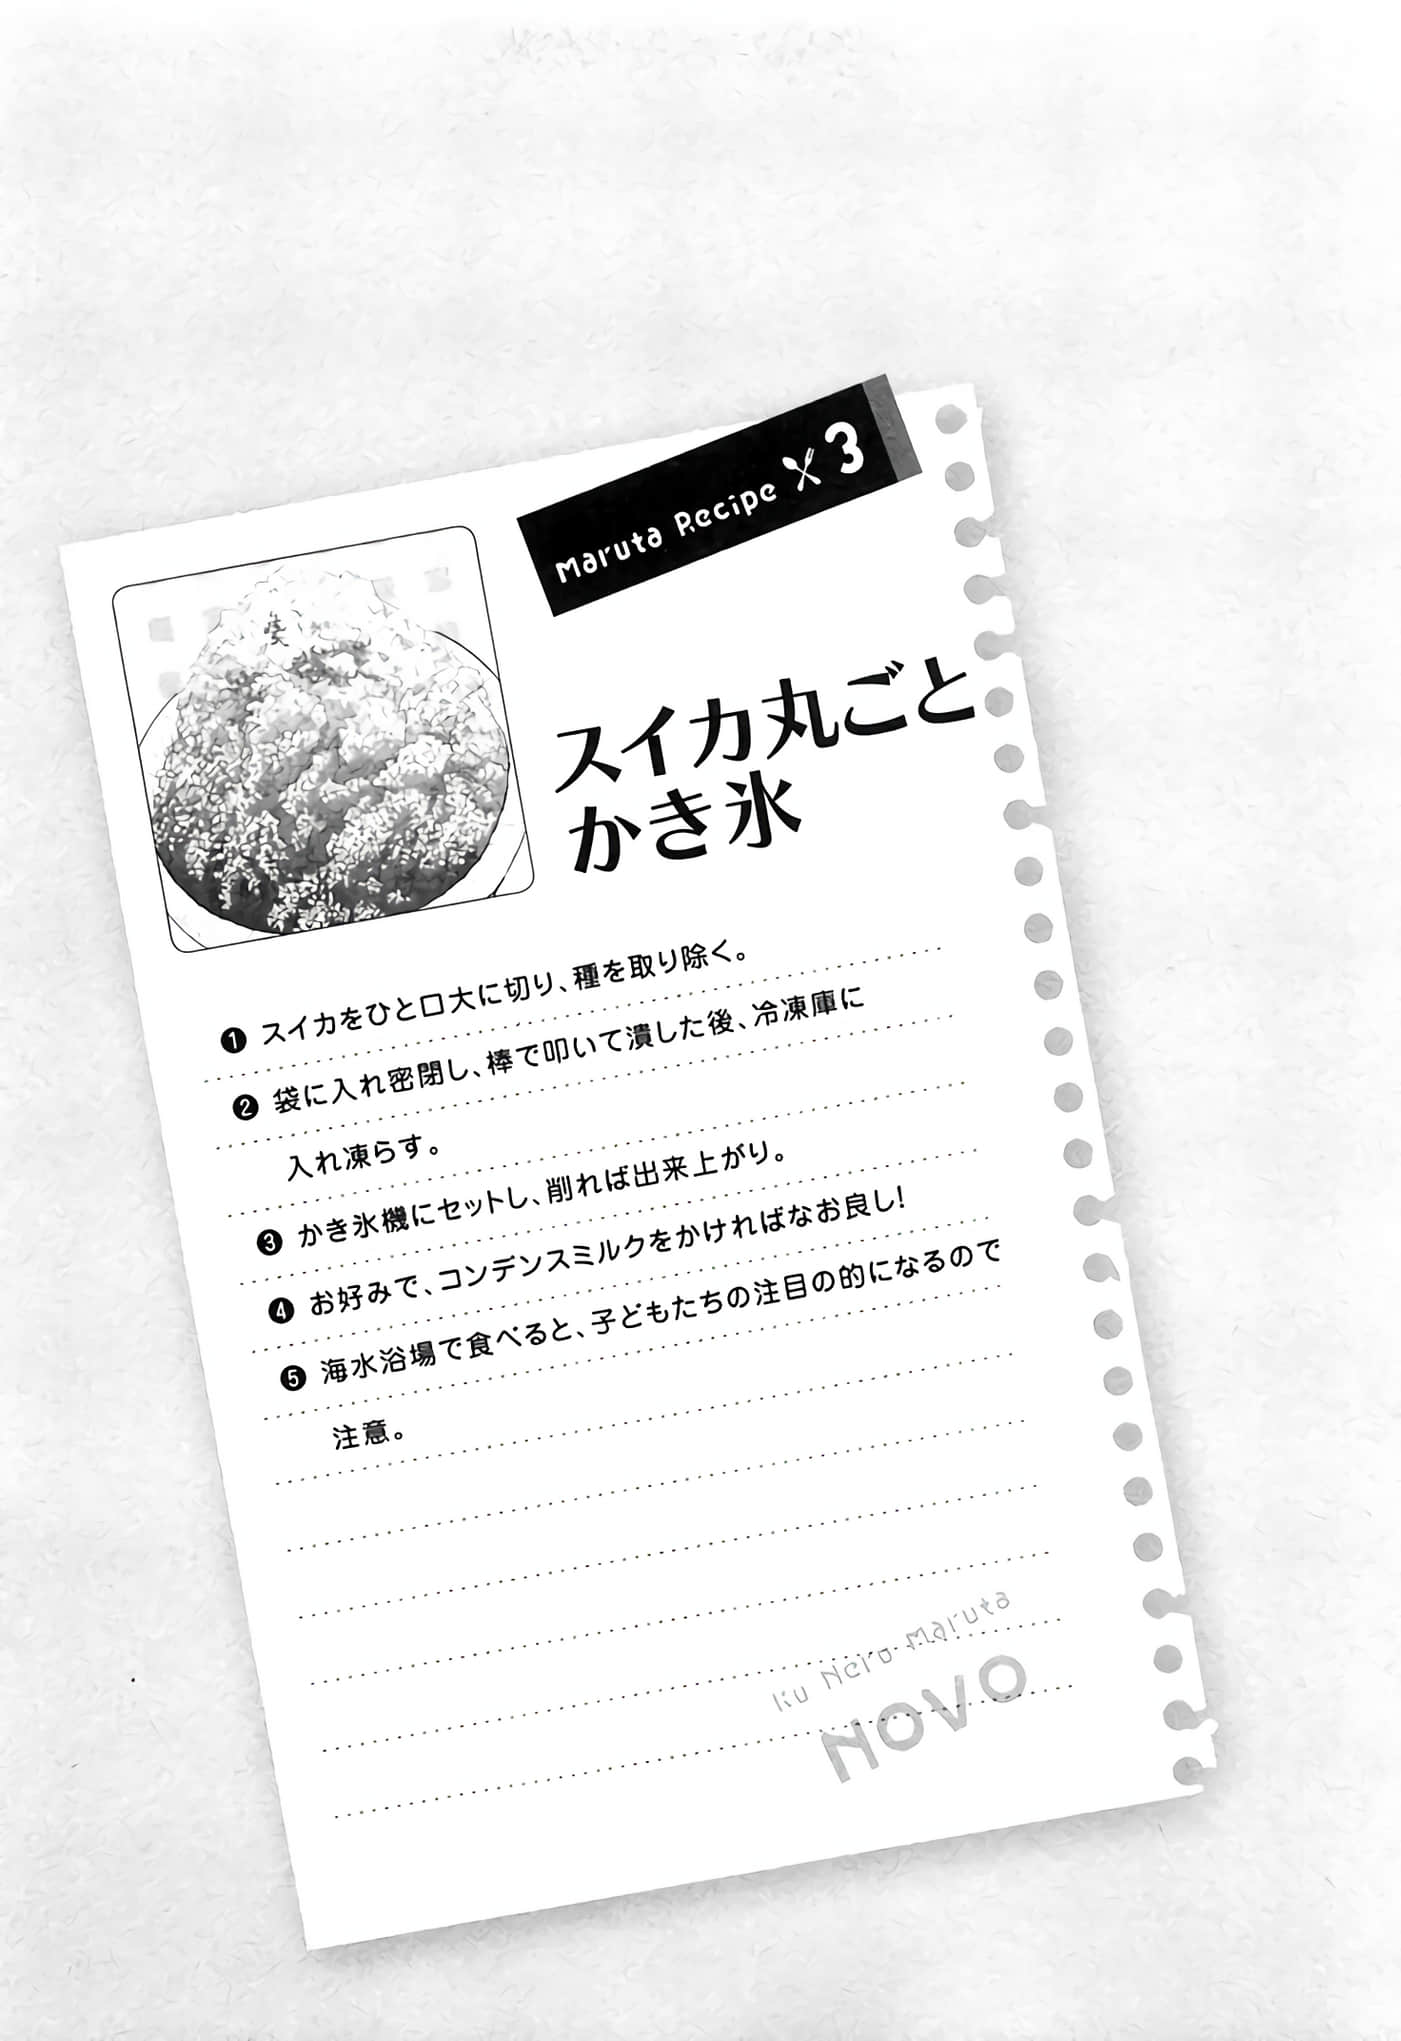 Maruta Recipe 3
スイカ丸ごと
かき氷
❶ スイカをひと口大に切り、種を取り除く。
❷ 袋に入れ密閉し、棒で叩いて潰した後、冷凍庫に
入れ凍らす。
❸ かき氷機にセットし、削れば出来上がり。
❹ お好みで、コンデンスミルクをかければなお良し!
❺ 海水浴場で食べると、子どもたちの注目の的になるので
注意。
Iku Nero Maruta
NOVO